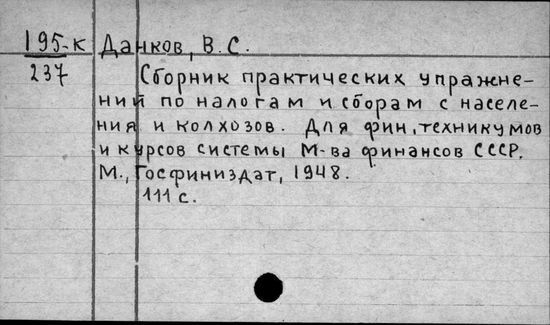 195-к Данков, В.С.
237
Сборник практических упражне-
ний по налогам и сборам с населе-
ния и колхозов. Для фин. техникумов
и курсов системы М-ва финансов СССР.
М., Госфиниздат, 1948.
111 с.